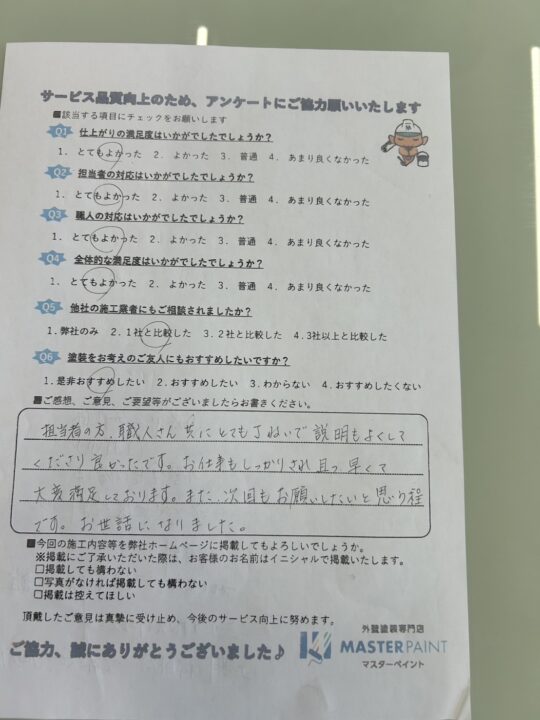 サービス品質向上のため、アンケートにご協力願いいたします
■該当する項目にチェックをお願いします
Q1 仕上がりの満足度はいかがでしたでしょうか？
1. とてもよかった 2. よかった 3. 普通 4. あまり良くなかった
Q2 担当者の対応はいかがでしたでしょうか？
1. とてもよかった 2. よかった 3. 普通 4. あまり良くなかった
Q3 職人の対応はいかがでしたでしょうか？
1. とてもよかった 2. よかった 3. 普通 4. あまり良くなかった
Q4 全体的な満足度はいかがでしたでしょうか？
1. とてもよかった 2. よかった 3. 普通 4. あまり良くなかった
Q5 他社の施工業者にもご相談されましたか？
1.弊社のみ 2.1社と比較した 3.2社と比較した 4.3社以上と比較した
Q6 塗装をお考えのご友人にもおすすめしたいですか？
1.是非おすすめしたい 2.おすすめしたい 3.わからない 4.おすすめしたくない
■ご感想、ご意見、ご要望等がございましたらお書きください。
担当者の方、職人さん共にとても丁ねいで説明もよくして
くださり良かったです。お仕事もしっかりされ且つ早くて
大変満足しております。また、次回もお願いしたいと思う程
です。お世話になりました。
■今回の施工内容等を弊社ホームページに掲載してもよろしいでしょうか。
※掲載にご了承いただいた際は、お客様のお名前はイニシャルで掲載いたします。
□掲載しても構わない
□写真がなければ掲載しても構わない
□掲載は控えてほしい
頂戴したご意見は真摯に受け止め、今後のサービス向上に努めます。
ご協力、誠にありがとうございました♪
外壁塗装専門店
MASTERPAINT
マスターペイント